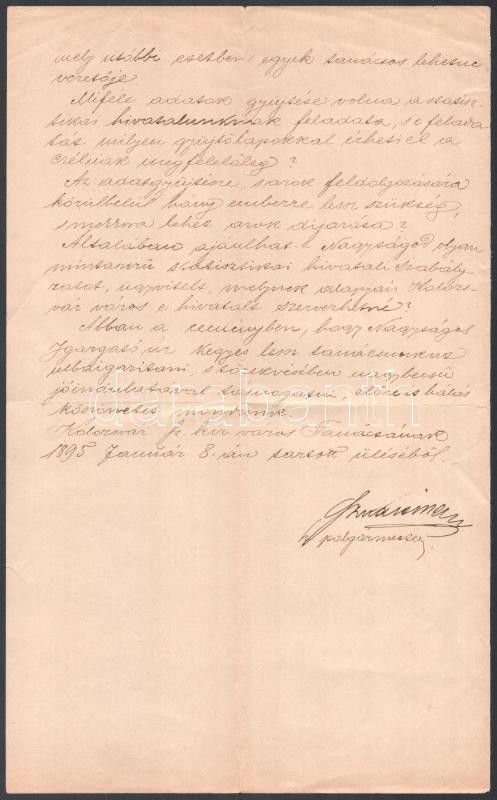 mely utóbbi esetben egyik tanácsos lehetne
vezetője
Miféle adatok gyüjtése volna a statisz-
tikai hivatalunknak feladata, s e felada-
tát milyen gyüjtőlapokkal érheti el a
czélnak megfelelőleg?
Az adatgyüjtésre, s azok feldolgozására
körülbelül hány emberre lesz szükség,
s mennyi lehet azok díjazása?
Általában ajánlhat-e Nagyságod olyan
mintaszerü statisztikai hivatali szabály-
zatot, ügyvitelt, melynek alapján Kolozs-
vár város e hivatalt szervezhetné?
Abban a reményben, hogy Nagyságos
Igazgató úr kegyes lesz tanácsunkat
utbaigazitani, s törekvésében nagybecsü
jóindulatával támogatni, előre is hálás
köszönetet mondunk
Kolozsvár sz. kir város Tanácsának
1895 Január 8-án tartott üléséből.
h. polgármester
darabanth